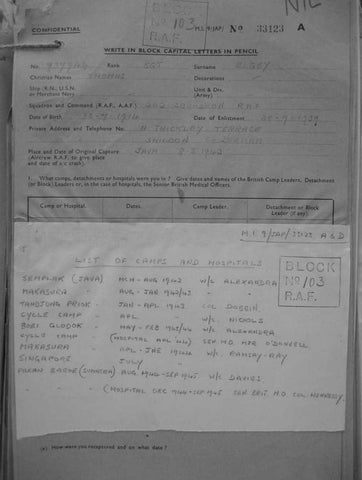 NIL
BLOCK
No/103
R.A.F.
CONFIDENTIAL
M.I.9/JAP/ No 33123 A
WRITE IN BLOCK CAPITAL LETTERS IN PENCIL
No. Rank SGT Surname
Christian Names THOMAS Decorations
Ship (R.N., U.S.N. or Merchant Navy) Unit & Div. (Army)
Squadron and Command (R.A.F., A.A.F.)
Date of Birth Date of Enlistment
Private Address and Telephone No. THICKLEY TERRACE
SHILDON
Place and Date of Original Capture JAVA 8 3 1942
(Aircrew R.A.F. to give place and date of a/c crash).
1. What camps, detachments or hospitals were you in? Give dates and names of the British Camp Leaders, Detachment (or Block) Leaders or, in the case of hospitals, the Senior British Medical Officers.
Camp or Hospital. Dates. Camp Leader. Detachment or Block Leader (if any).
M.I.9/JAP/ A & D
LIST OF CAMPS AND HOSPITALS
BLOCK
No/103
R.A.F.
SEMPLAK (JAVA) MCH - AUG 1942 W/C ALEXANDRA
MAKASURA AUG - JAN 1942/43
TANDJONG PRIOK JAN - APL 1943 COL
CYCLE CAMP APL W/C NICHOLS
BOEI GLODOK MAY - FEB 1943/44 W/C ALEXANDRA
CYCLE CAMP (HOSPITAL APL 44) SEN M.O. MJR O'DONNELL
MAKASURA APL - JNE 1944 W/C RAMSAY-RAY
SINGAPORE JULY
PAKAN BAROE (SUMATRA) AUG 1944 - SEP 1945 W/C DAVIES
(HOSPITAL DEC 1944 - SEP 1945 SEN BRIT. M.O. COL HENNESSY
(a) How were you recaptured and on what date?